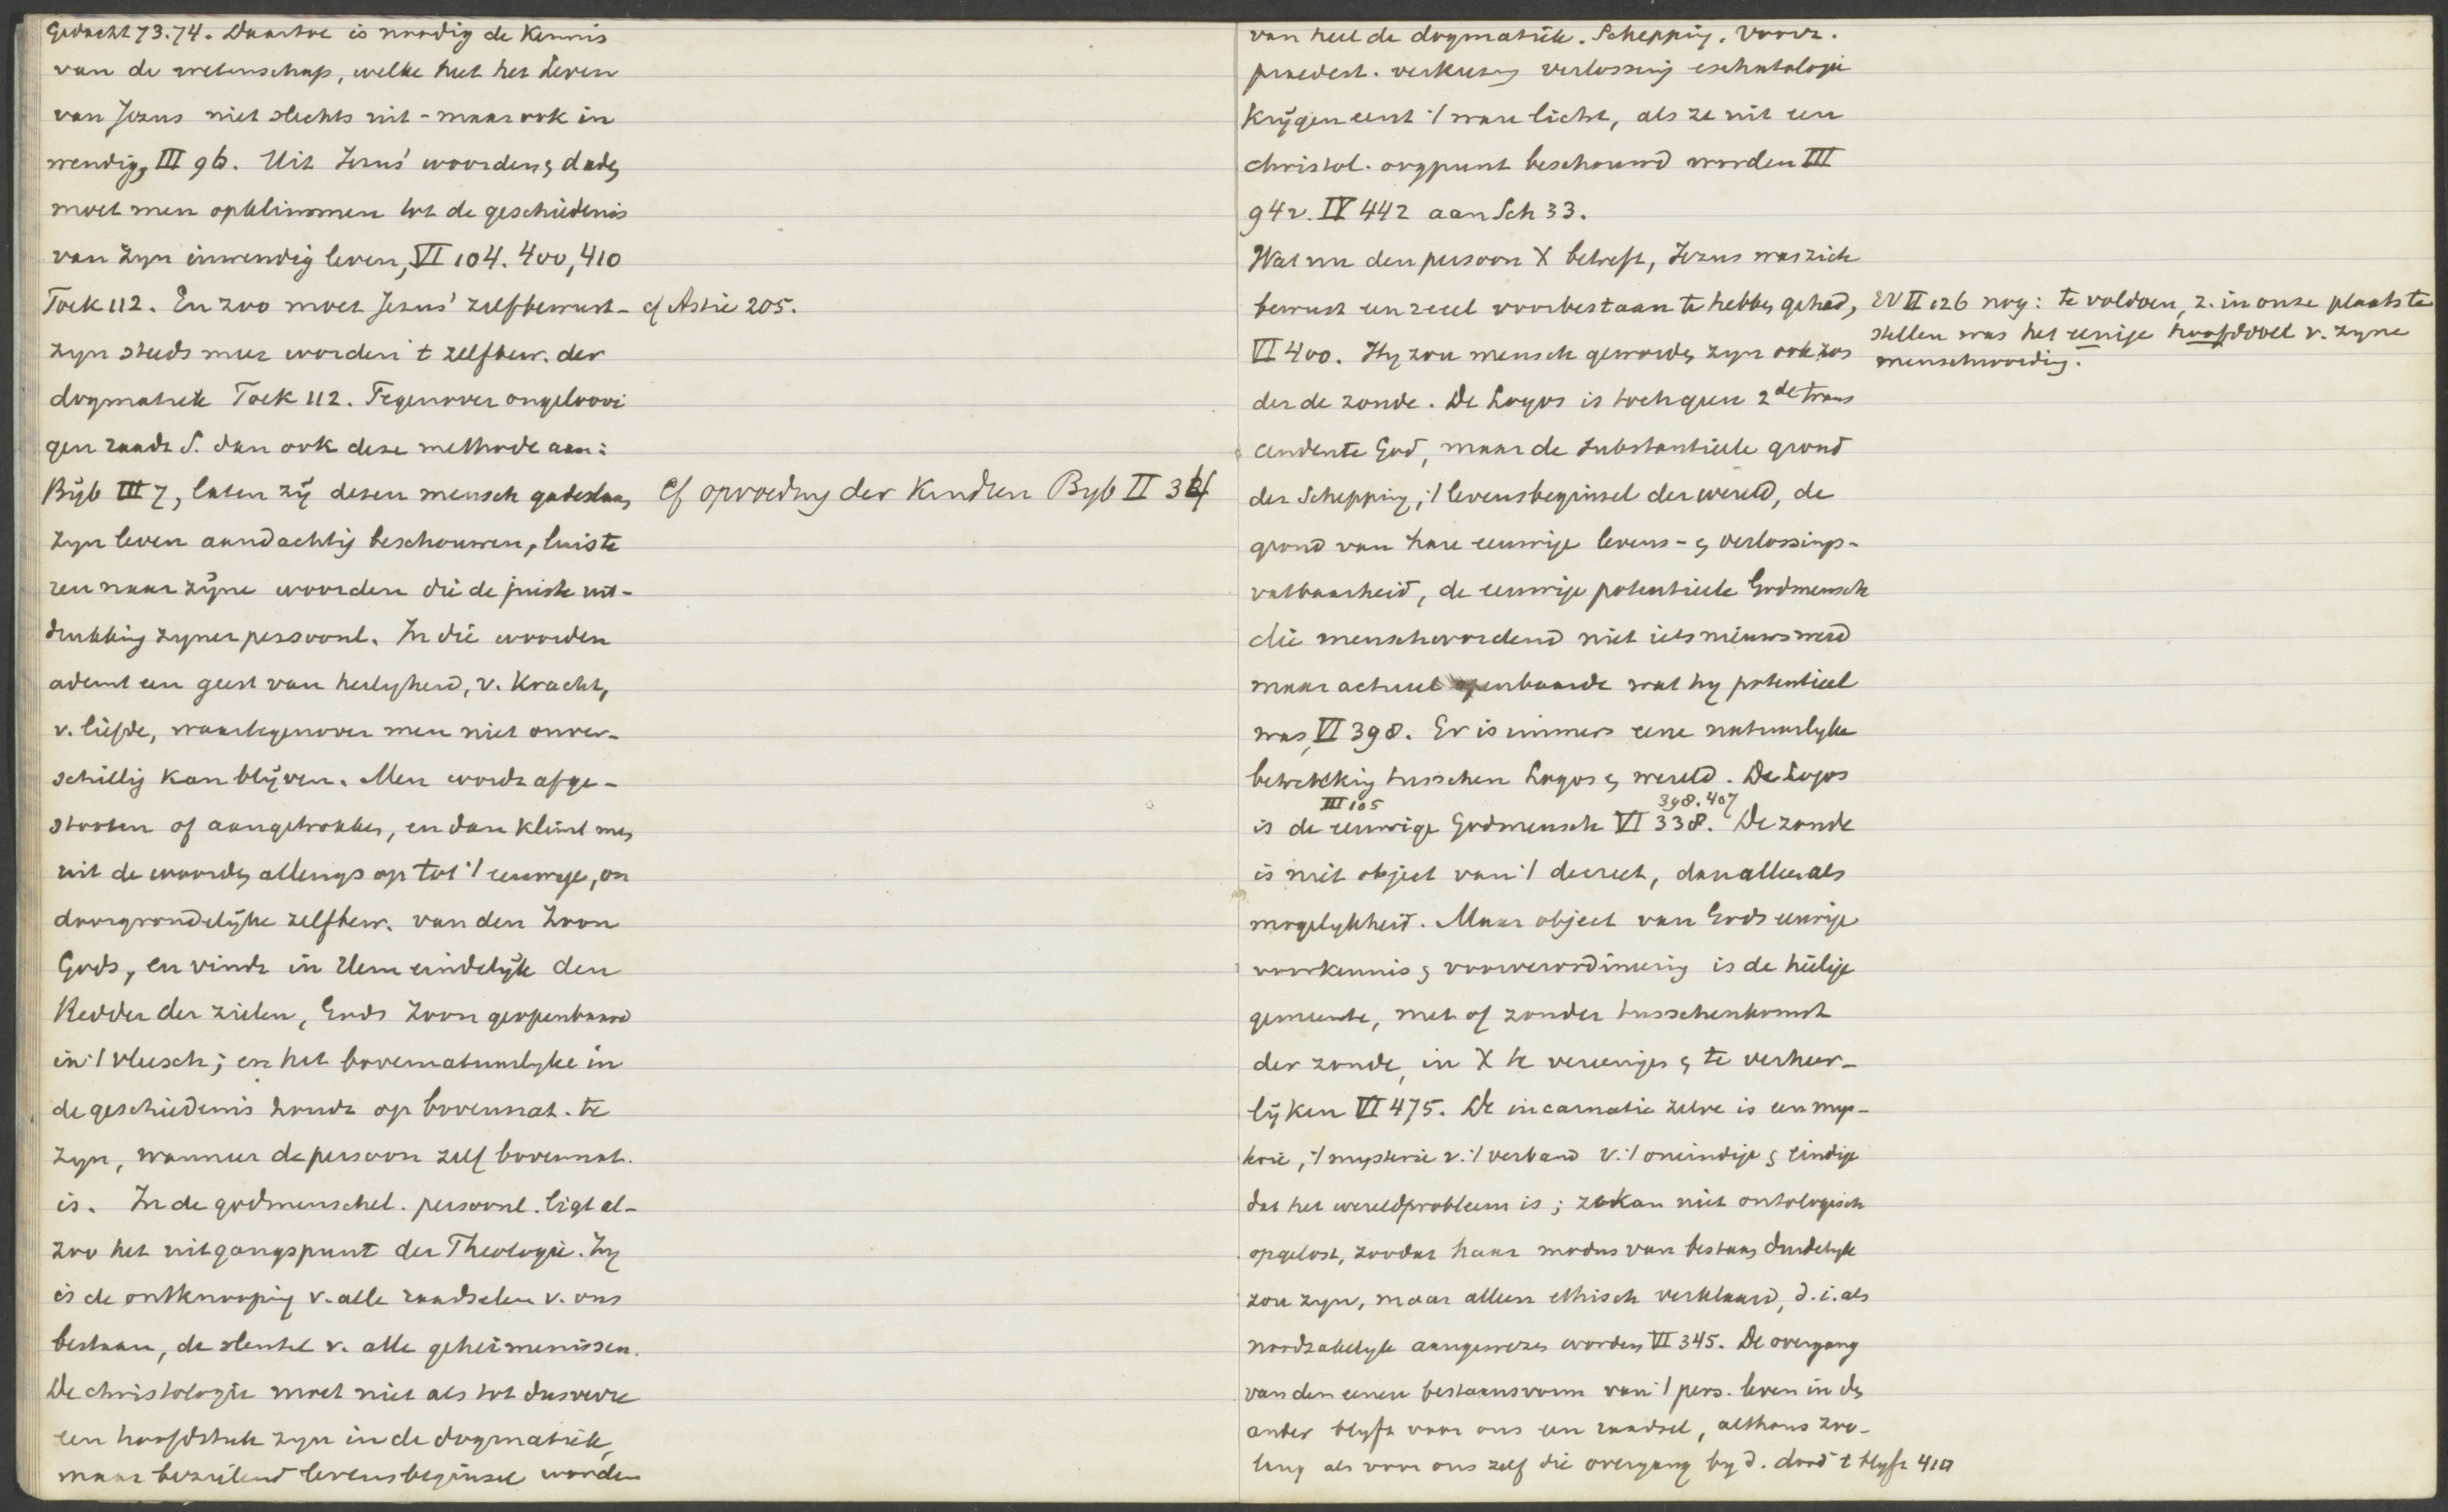 Gedacht 73.74. Daartoe is noodig de Kennis
van de wetenschap, welke heet het Leven
van Jezus niet slechts uit - maar ook in
wendig, III 96. Uit Jezus' woorden & daden
moet men opklimmen tot de geschiedenis
van zijn inwendig leven, VI 104. 400, 410
Toek 112. En zoo moet Jezus' zelfbewust-
cf Astié 205.
zijn steeds meer worden 't zelfbew. der
dogmatiek Toek 112. Tegenover ongeloovi
gen raadt S. dan ook deze methode aan:
Bijb III 7, laten zij dezen mensch gadeslaan,
cf opvoeding der Kindren Byb II 34
zijn leven aandachtig beschouwen, luiste
ren naar zijne woorden die de juiste uit-
drukking zijner persoonl. In die woorden
ademt een geest van heiligheid, v. Kracht,
v. liefde, waartegenover men niet onver-
schillig kan blijven. Men wordt afge-
stooten of aangetrokken, en dan klimt men
uit de woorden allengs op tot 't eeuwige, on
doorgrondelijke zelfbew. van den Zoon
Gods, en vindt in Hem eindelijk den
Redder der zielen, Gods Zoon geopenbaard
in 't vleesch; en het bovennatuurlyke in
de geschiedenis houdt op bovennat. te
zyn, wanneer de persoon zelf bovennat.
is. In de godmenschel. persoonl. ligt al-
zoo het uitgangspunt der Theologie. Zy
is de ontknooping v. alle raadselen v. ons
bestaan, de sleutel v. alle geheimenissen.
De christologie moet niet als tot dusverre
een hoofdstuk zyn in de dogmatiek,
maar bezielend levensbeginsel worden
van heel de dogmatiek. Schepping. Voorz.
praedest. verkiezing verlossing eschatologie
Krijgen eerst 't ware licht, als ze uit een
christol. oogpunt beschouwd worden III
942. IV 442 aan Sch 33.
Wat nu den persoon X betreft, Jezus was zich
bewust een reeel voorbestaan te hebben gehad,
VI 400. Hy zou mensch geworden zyn ook zon
der de zonde. De Logos is toch geen 2de trans
cendente God, maar de substantieele grond
der Schepping, 't levensbeginsel der wereld, de
grond van hare eeuwige levens- & verlossings-
vatbaarheid, de eeuwige potentieele Godmensch
die menschwordend niet iets nieuws werd
maar actueel openbaarde wat hy potentieel
was, VI 398. Er is immers eene natuurlyke
betrekking tusschen Logos & wereld. De Logos
III 105 398.407
is de eeuwige Godmensch VI 338. De zonde
is niet object van 't decreet, dan alleen als
mogelykheid. Maar object van Gods eeuwige
voorkennis & voorverordineering is de heilige
gemeente, met of zonder tusschenkomst
der zonde, in X te vereenigen & te verheer-
lijken VI 475. De incarnatie zelve is een mys-
terie, 't mysterie v. 't verband v. 't oneindige & eindige
dat het wereldprobleem is; ze kan niet ontologisch
opgelost, zoodat haar modus van bestaan duidelyk
zou zyn, maar alleen ethisch verklaard, d.i. als
noodzakelyk aangewezen worden VI 345. De overgang
van den eenen bestaansvorm van 't pers. leven in den
ander blyft voor ons een raadsel, althans zoo-
lang als voor ons zelf die overgang by d. dood 't blyft 410
EV II 126 nog: te voldoen, z. in onze plaats te
stellen was het eenige hoofddoel v. zyne
menschwording.